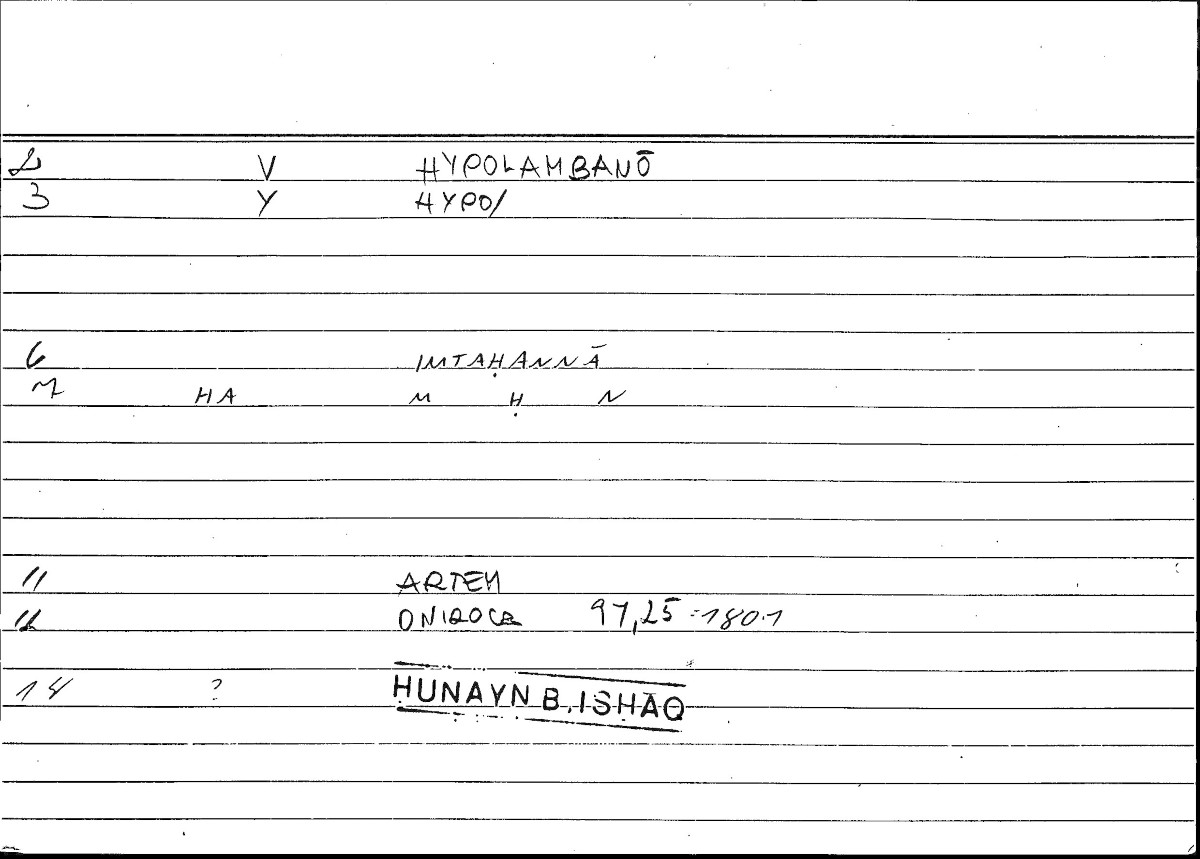 2 V HYPOLAMBANŌ
3 Y HYPO/
6 IMTAḤANNĀ
7 HA M Ḥ N
11 ARTEM
12 ONIROCR 97,25 = 180.1
14 ? ḤUNAYN B. ISḤĀQ